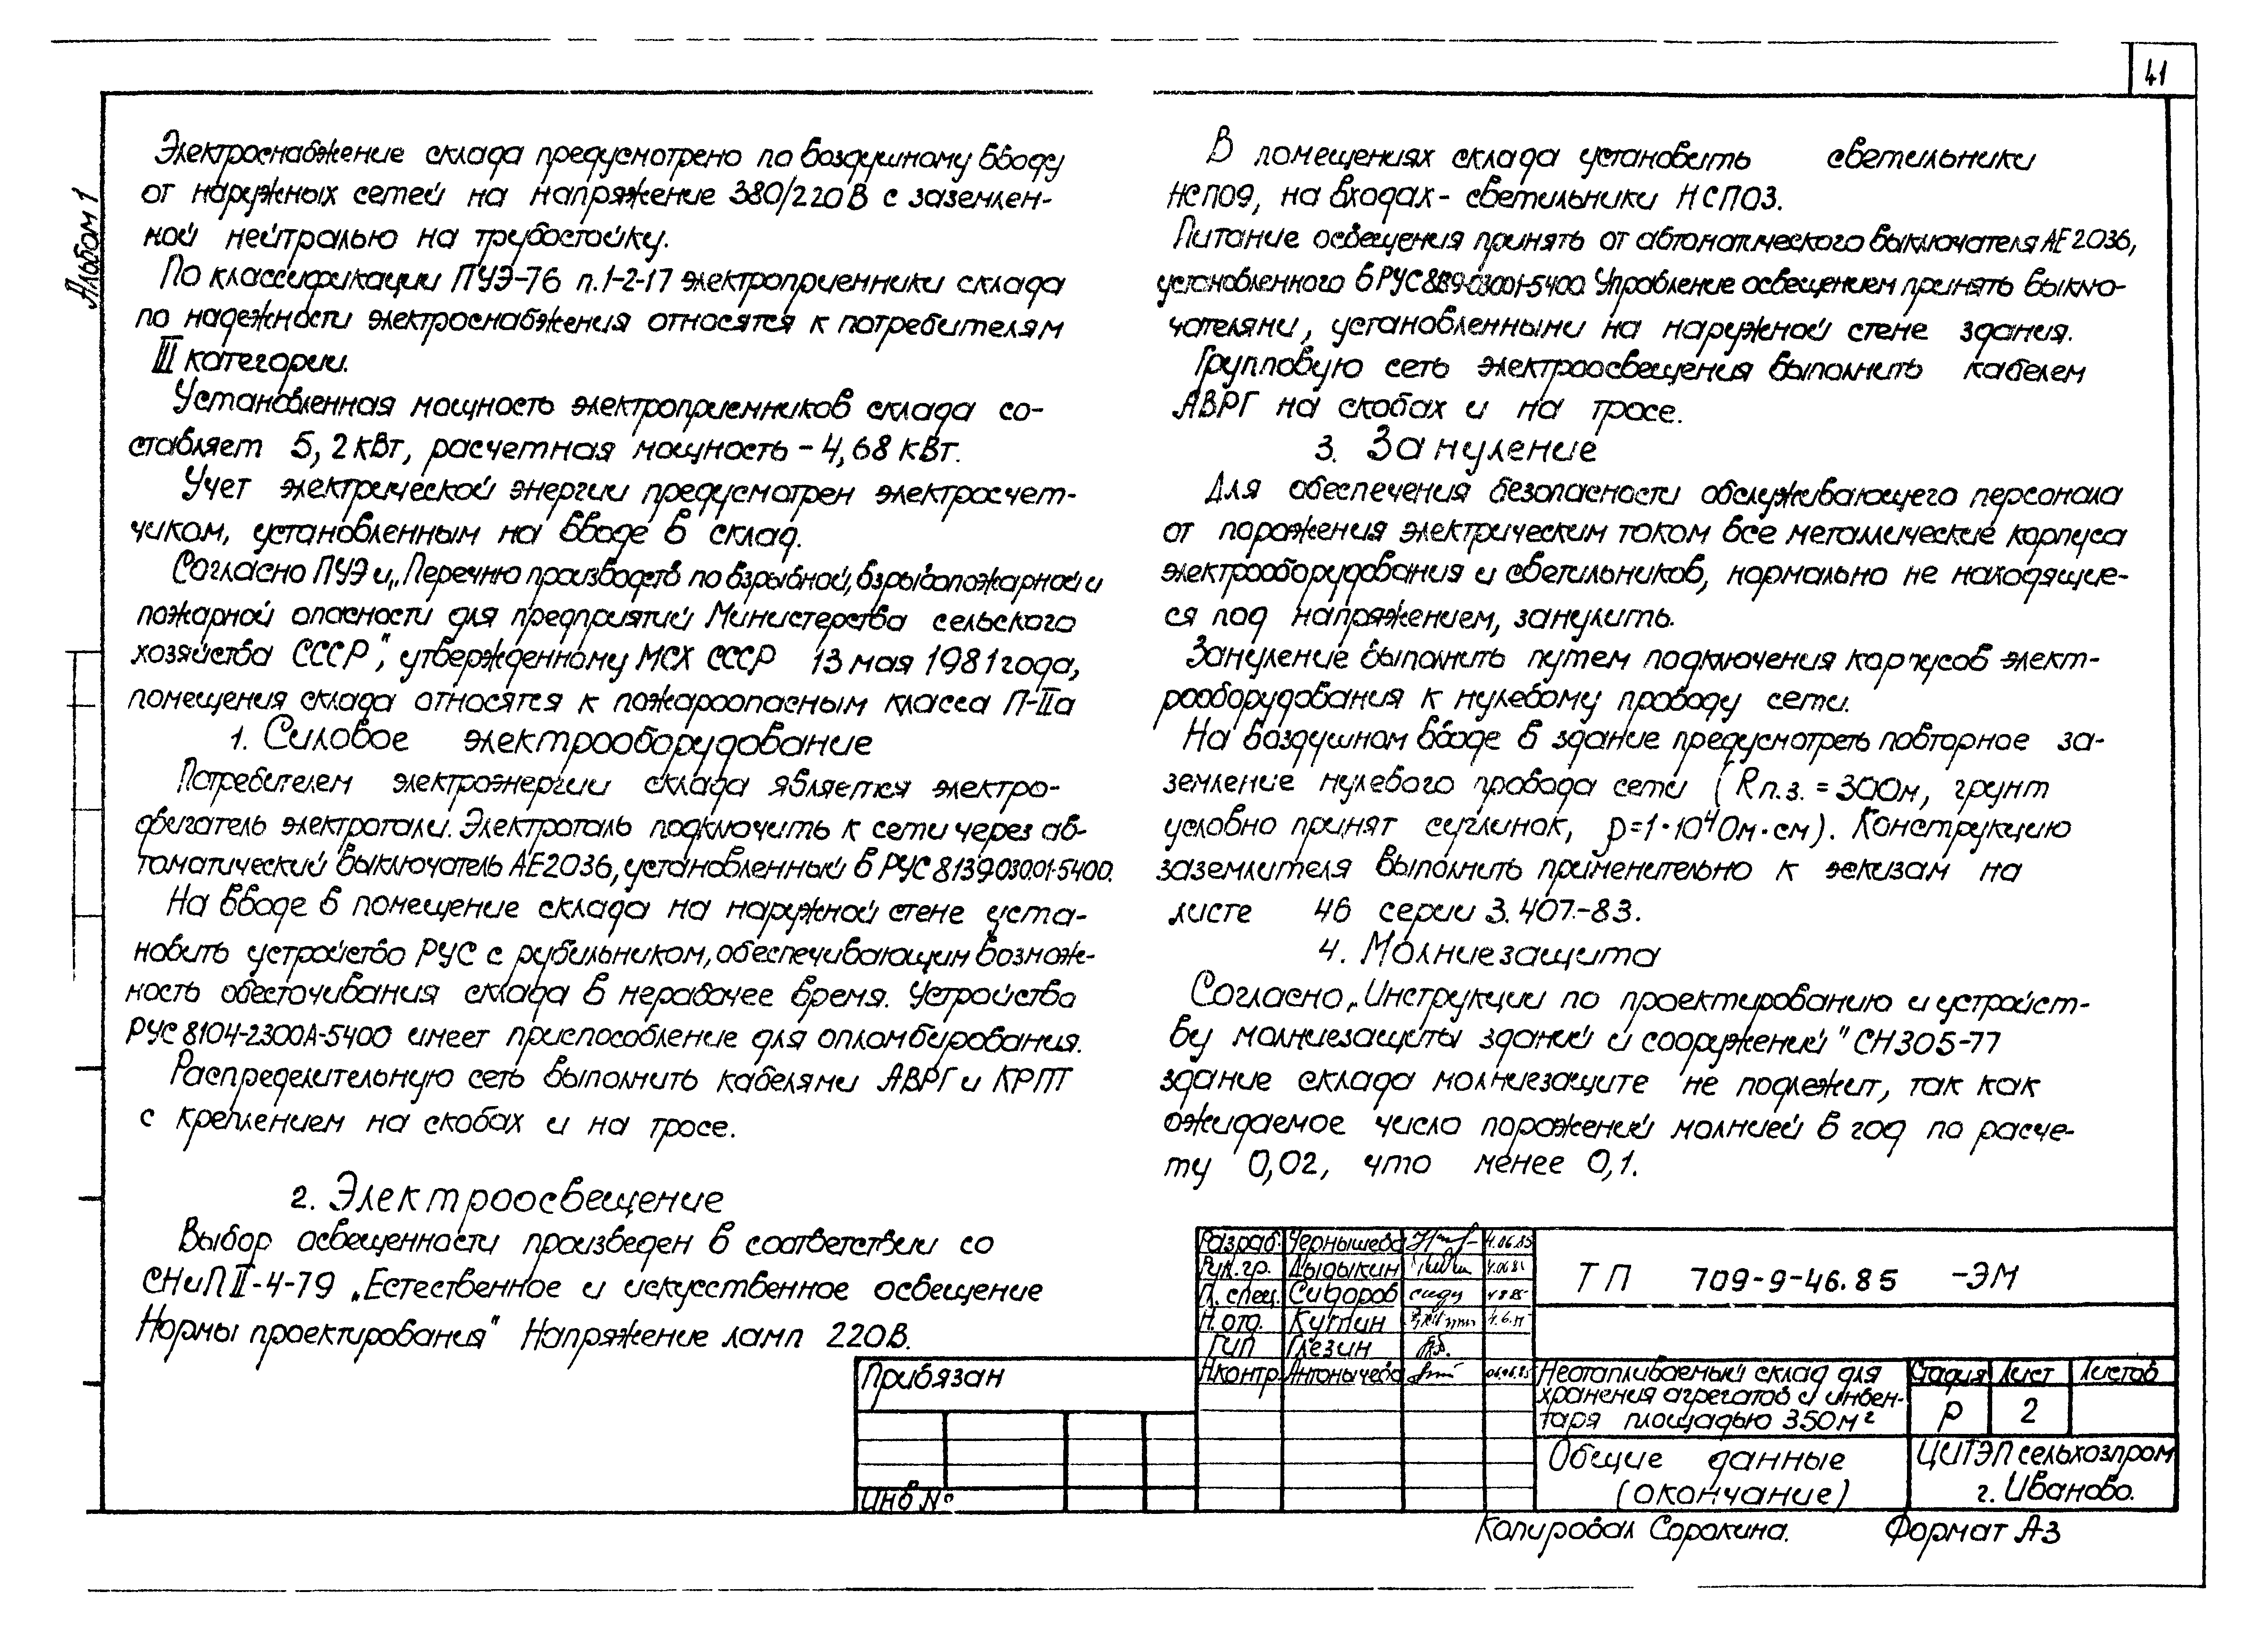 41
Альбом 1
Электроснабжение склада предусмотрено по воздушному вводу
от наружных сетей на напряжение 380/220В с заземлен-
ной нейтралью на трубостойку.
По классификации ПУЭ-76 п.1-2-17 электроприемники склада
по надежности электроснабжения относятся к потребителям
III категории.
Установленная мощность электроприемников склада со-
ставляет 5,2 кВт, расчетная мощность - 4,68 кВт.
Учет электрической энергии предусмотрен электросчет-
чиком, установленным на вводе в склад.
Согласно ПУЭ и „Перечню производств по взрывной, взрывопожарной и
пожарной опасности для предприятий Министерства сельского
хозяйства СССР", утвержденному МСХ СССР 13 мая 1981 года,
помещения склада относятся к пожароопасным класса П-IIа
1. Силовое электрооборудование
Потребителем электроэнергии склада является электро-
двигатель электротали. Электроталь подключить к сети через ав-
томатический выключатель АЕ2036, установленный в РУС 8139-03001-5400.
На вводе в помещение склада на наружной стене уста-
новить устройство РУС с рубильником, обеспечивающим возмож-
ность обесточивания склада в нерабочее время. Устройство
РУС 8104-2300А-5400 имеет приспособление для опломбирования.
Распределительную сеть выполнить кабелями АВРГ и КРПТ
с креплением на скобах и на тросе.
2. Электроосвещение
Выбор освещенности произведен в соответствии со
СНиП II-4-79 „Естественное и искусственное освещение
Нормы проектирования" Напряжение ламп 220В.
В помещениях склада установить светильники
НСП09, на входах - светильники НСП03.
Питание освещения принять от автоматического выключателя АЕ2036,
установленного в РУС Управление освещением принять выклю-
чателями, установленными на наружной стене здания.
Групповую сеть электроосвещения выполнить кабелем
АВРГ на скобах и на тросе.
3. Зануление
Для обеспечения безопасности обслуживающего персонала
от поражения электрическим током все металлические корпуса
электрооборудования и светильников, нормально не находящие-
ся под напряжением, занулить.
Зануление выполнить путем подключения корпусов элект-
рооборудования к нулевому проводу сети.
На воздушном вводе в здание предусмотреть повторное за-
земление нулевого провода сети (Rп.з. = 30Ом, грунт
условно принят суглинок, ρ=1·10⁴Ом·см). Конструкцию
заземлителя выполнить применительно к эскизам на
листе 46 серии 3.407-83.
4. Молниезащита
Согласно „Инструкции по проектированию и устройст-
ву молниезащиты зданий и сооружений" СН305-77
здание склада молниезащите не подлежит, так как
ожидаемое число поражений молнией в год по расче-
ту 0,02, что менее 0,1.
Разраб. Чернышева 4.06.85
Рук. гр. Дыдыкин
Гл. спец. Сидоров
Н. отд. Куглин
ГИП Глезин
Н.контр. Антонычева 06.06.85
ТП 709-9-46.85 -ЭМ
Неотапливаемый склад для
хранения агрегатов и инвен-
таря площадью 350 м²
Стадия Лист Листов
Р 2
Общие данные
(окончание)
ЦИТЭПсельхозпром
г. Иваново.
Привязан
Инв №
Копировал Сорокина. Формат А3